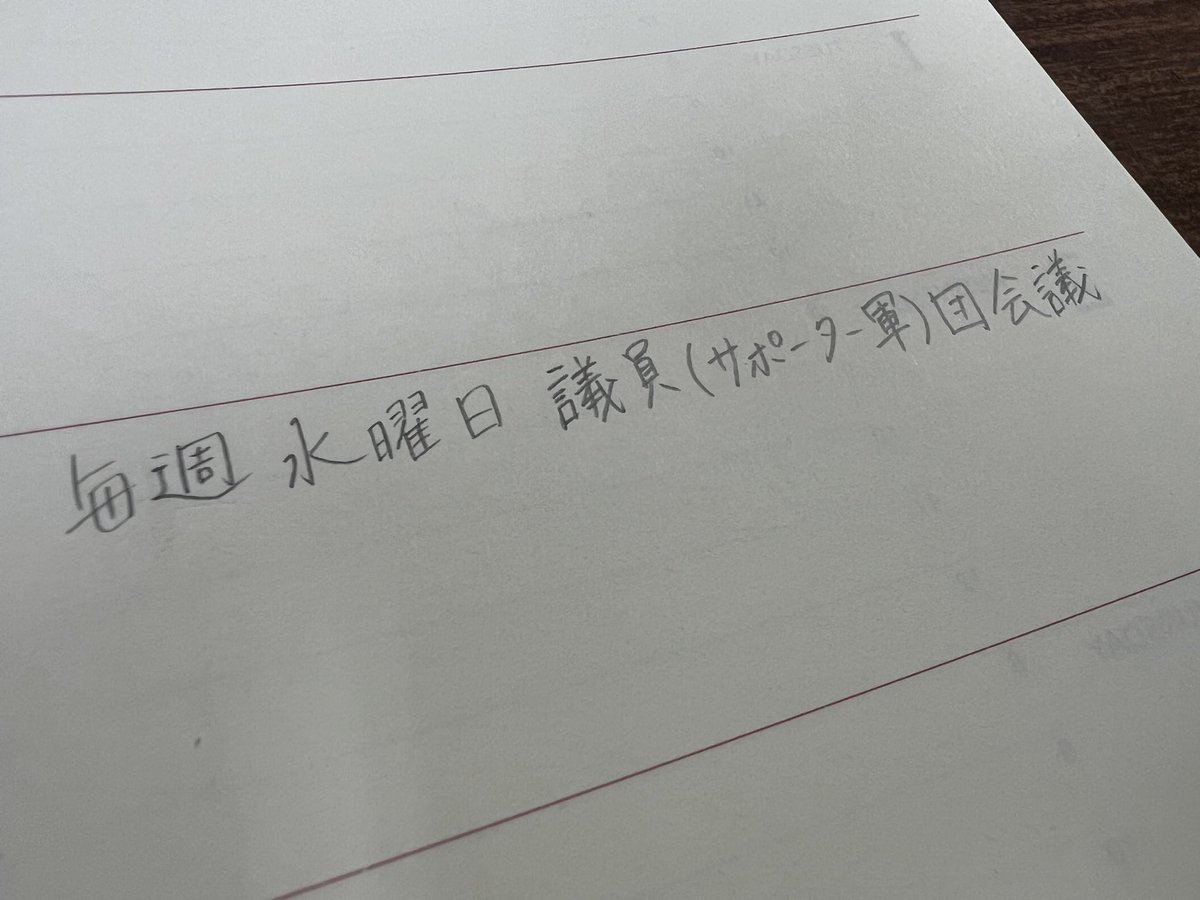 毎週 水曜日 議員(サポーター軍)団会議